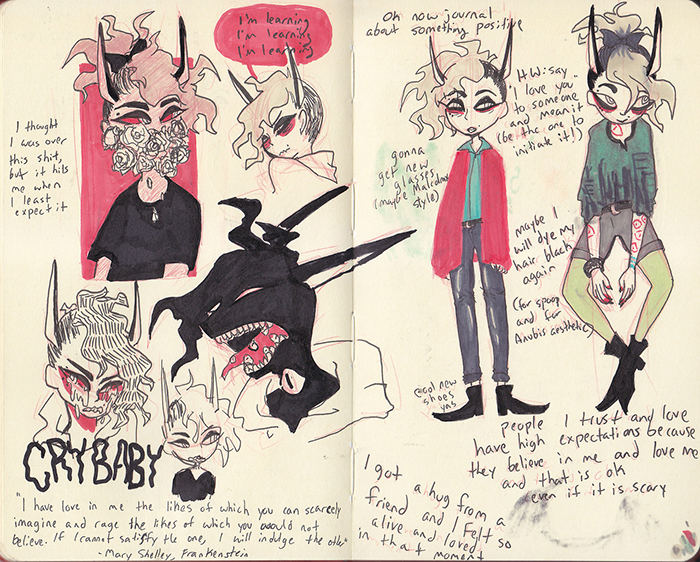 I'm learning
I'm learning
I'm learning
I thought
I was over
this shit,
but it hits
me when
I least
expect it
CRYBABY
"I have love in me the likes of which you can scarcely
imagine and rage the likes of which you would not
believe. If I cannot satisfy the one, I will indulge the other"
-Mary Shelley, Frankenstein
Oh now journal
about something positive
HW: say
"I love you"
to someone
and mean it
(be the one to
initiate it!)
gonna
get new
glasses
(maybe Malcolm X
style)
maybe I
will dye my
hair black
again
(for spoop
and for
Anubis aesthetic)
got new
shoes
yas
people I trust and love
have high expectations because
they believe in me and love me
and that is ok
even if it is scary
I got a hug from a
friend and I felt so
alive and loved
in that moment